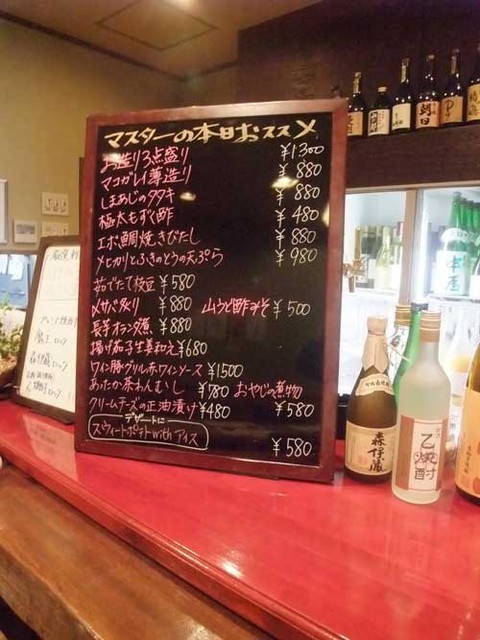 マスターの本日おススメ
お造り3点盛り ¥1300
マコガレイ薄造り ¥880
しまあじのタタキ ¥880
極太もずく酢 ¥480
エボ鯛焼きびたし ¥880
メヒカリとふきのとうの天ぷら ¥980
茹でたて枝豆 ¥580
〆サバ炙り ¥880 山うど酢みそ ¥500
長芋オランダ煮 ¥880
揚げ茄子生姜和え ¥680
ワイン豚グリル赤ワインソース ¥1500
あったか茶わんむし ¥780 おやじの煮物
クリームチーズの正油漬け ¥480 ¥580
デザートに
スウィートポテトwithアイス ¥580
森伊蔵
乙焼酎
朝日